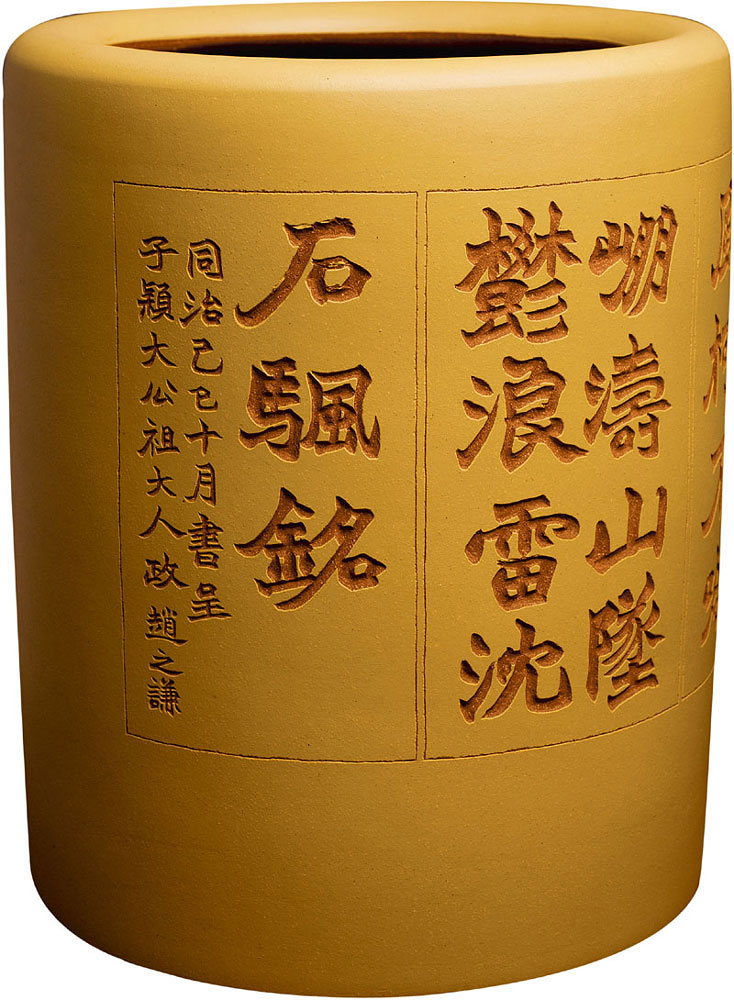 崩濤山墜
鬱浪雷沈
石颿銘
同治己巳十月書呈
子穎大公祖大人政趙之謙